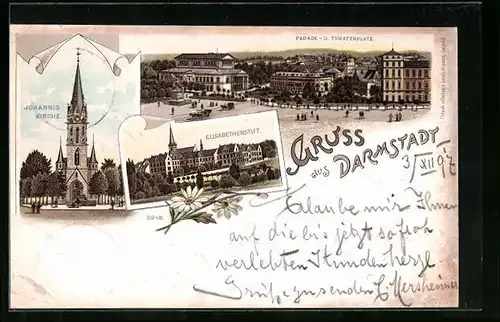 PARADE- U. THEATERPLATZ.
JOHANNIS
KIRCHE
ELISABETHENSTIFT.
GRUSS
aus DARMSTADT
3/XII 97
Erlaube mir Ihnen
auf die bis jetzt so froh
verlebten Stunden herzl.
Grüße zu senden